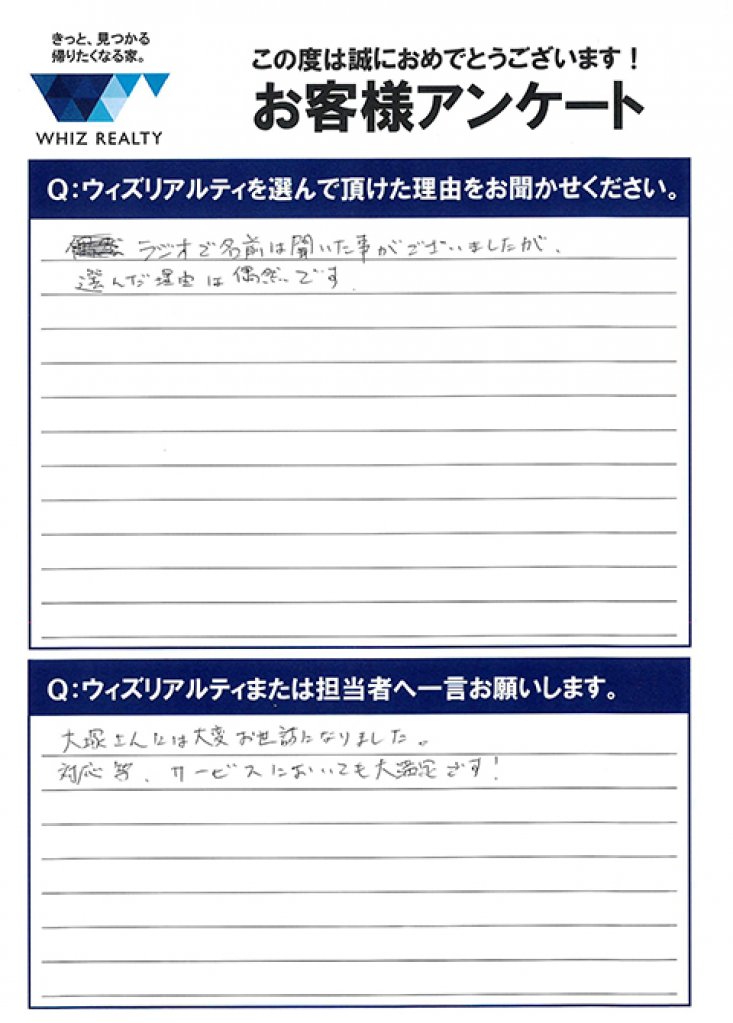 きっと、見つかる
帰りたくなる家。
WHIZ REALTY
この度は誠におめでとうございます！
お客様アンケート
Q：ウィズリアルティを選んで頂けた理由をお聞かせください。
ラジオで名前は聞いた事がございましたが、
選んだ理由は偶然です
Q：ウィズリアルティまたは担当者へ一言お願いします。
大塚さんには大変お世話になりました。
対応等、サービスにおいても大満足です！